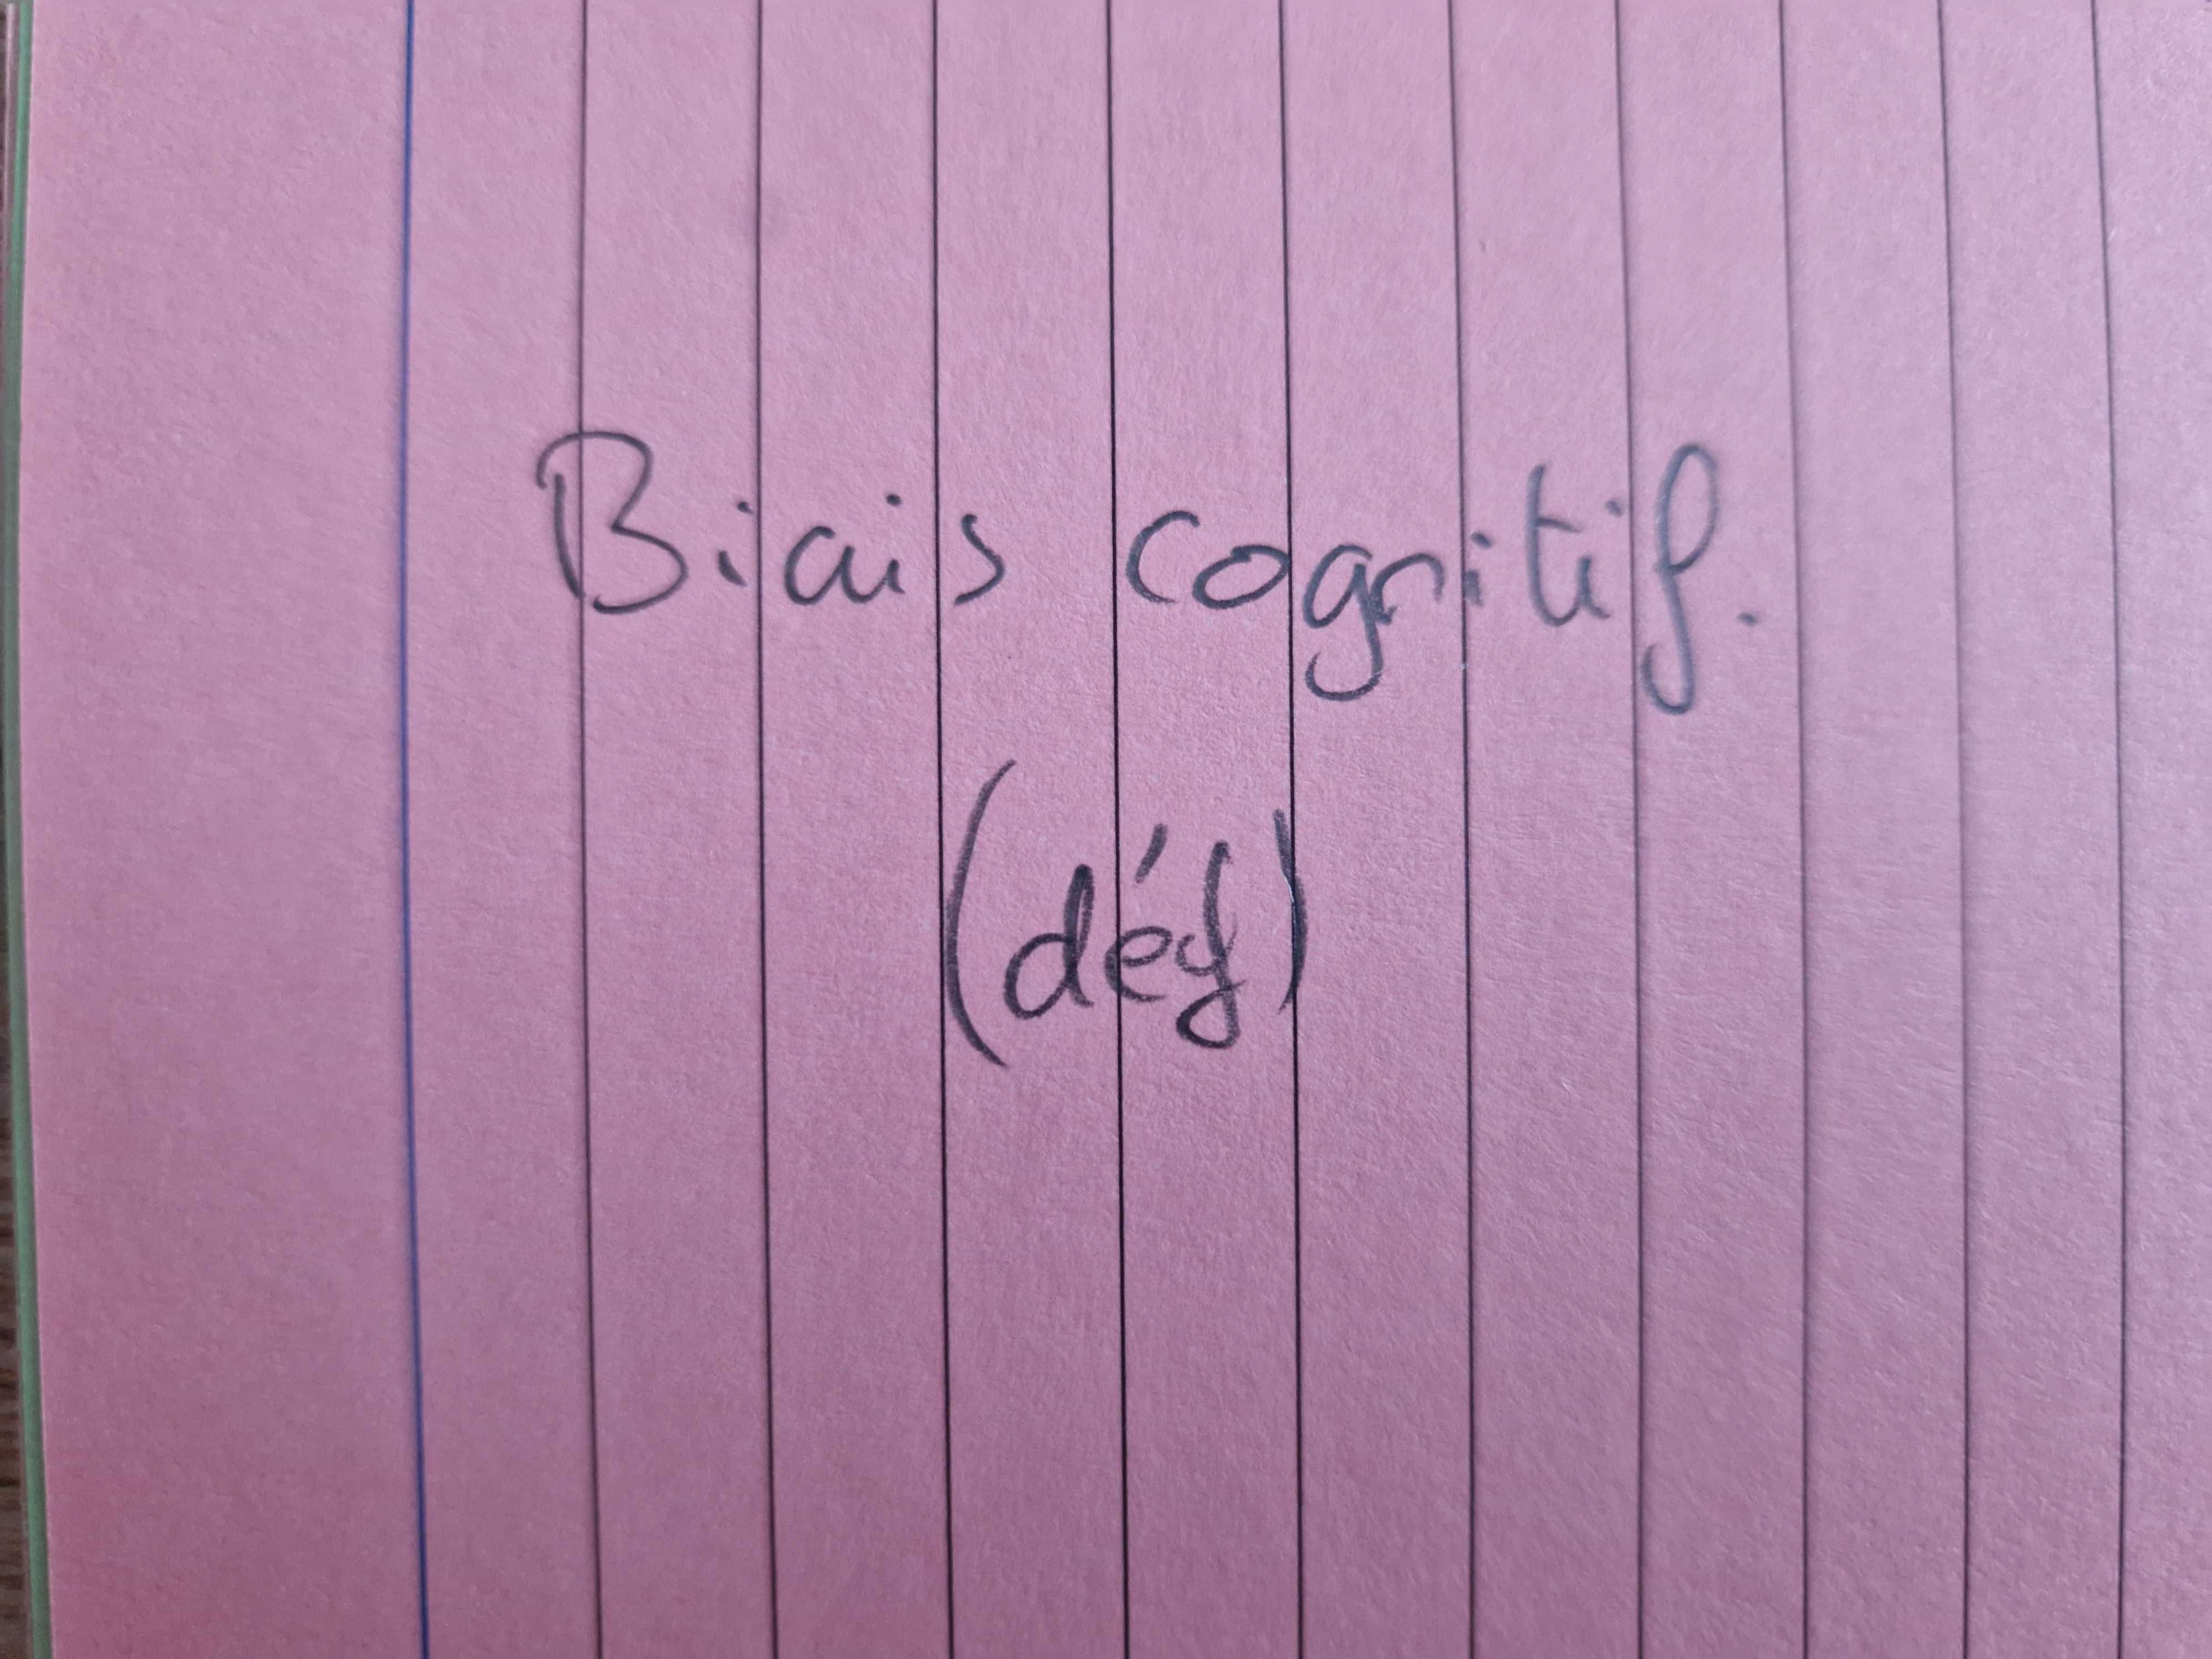 Biais cognitif.
(déf)